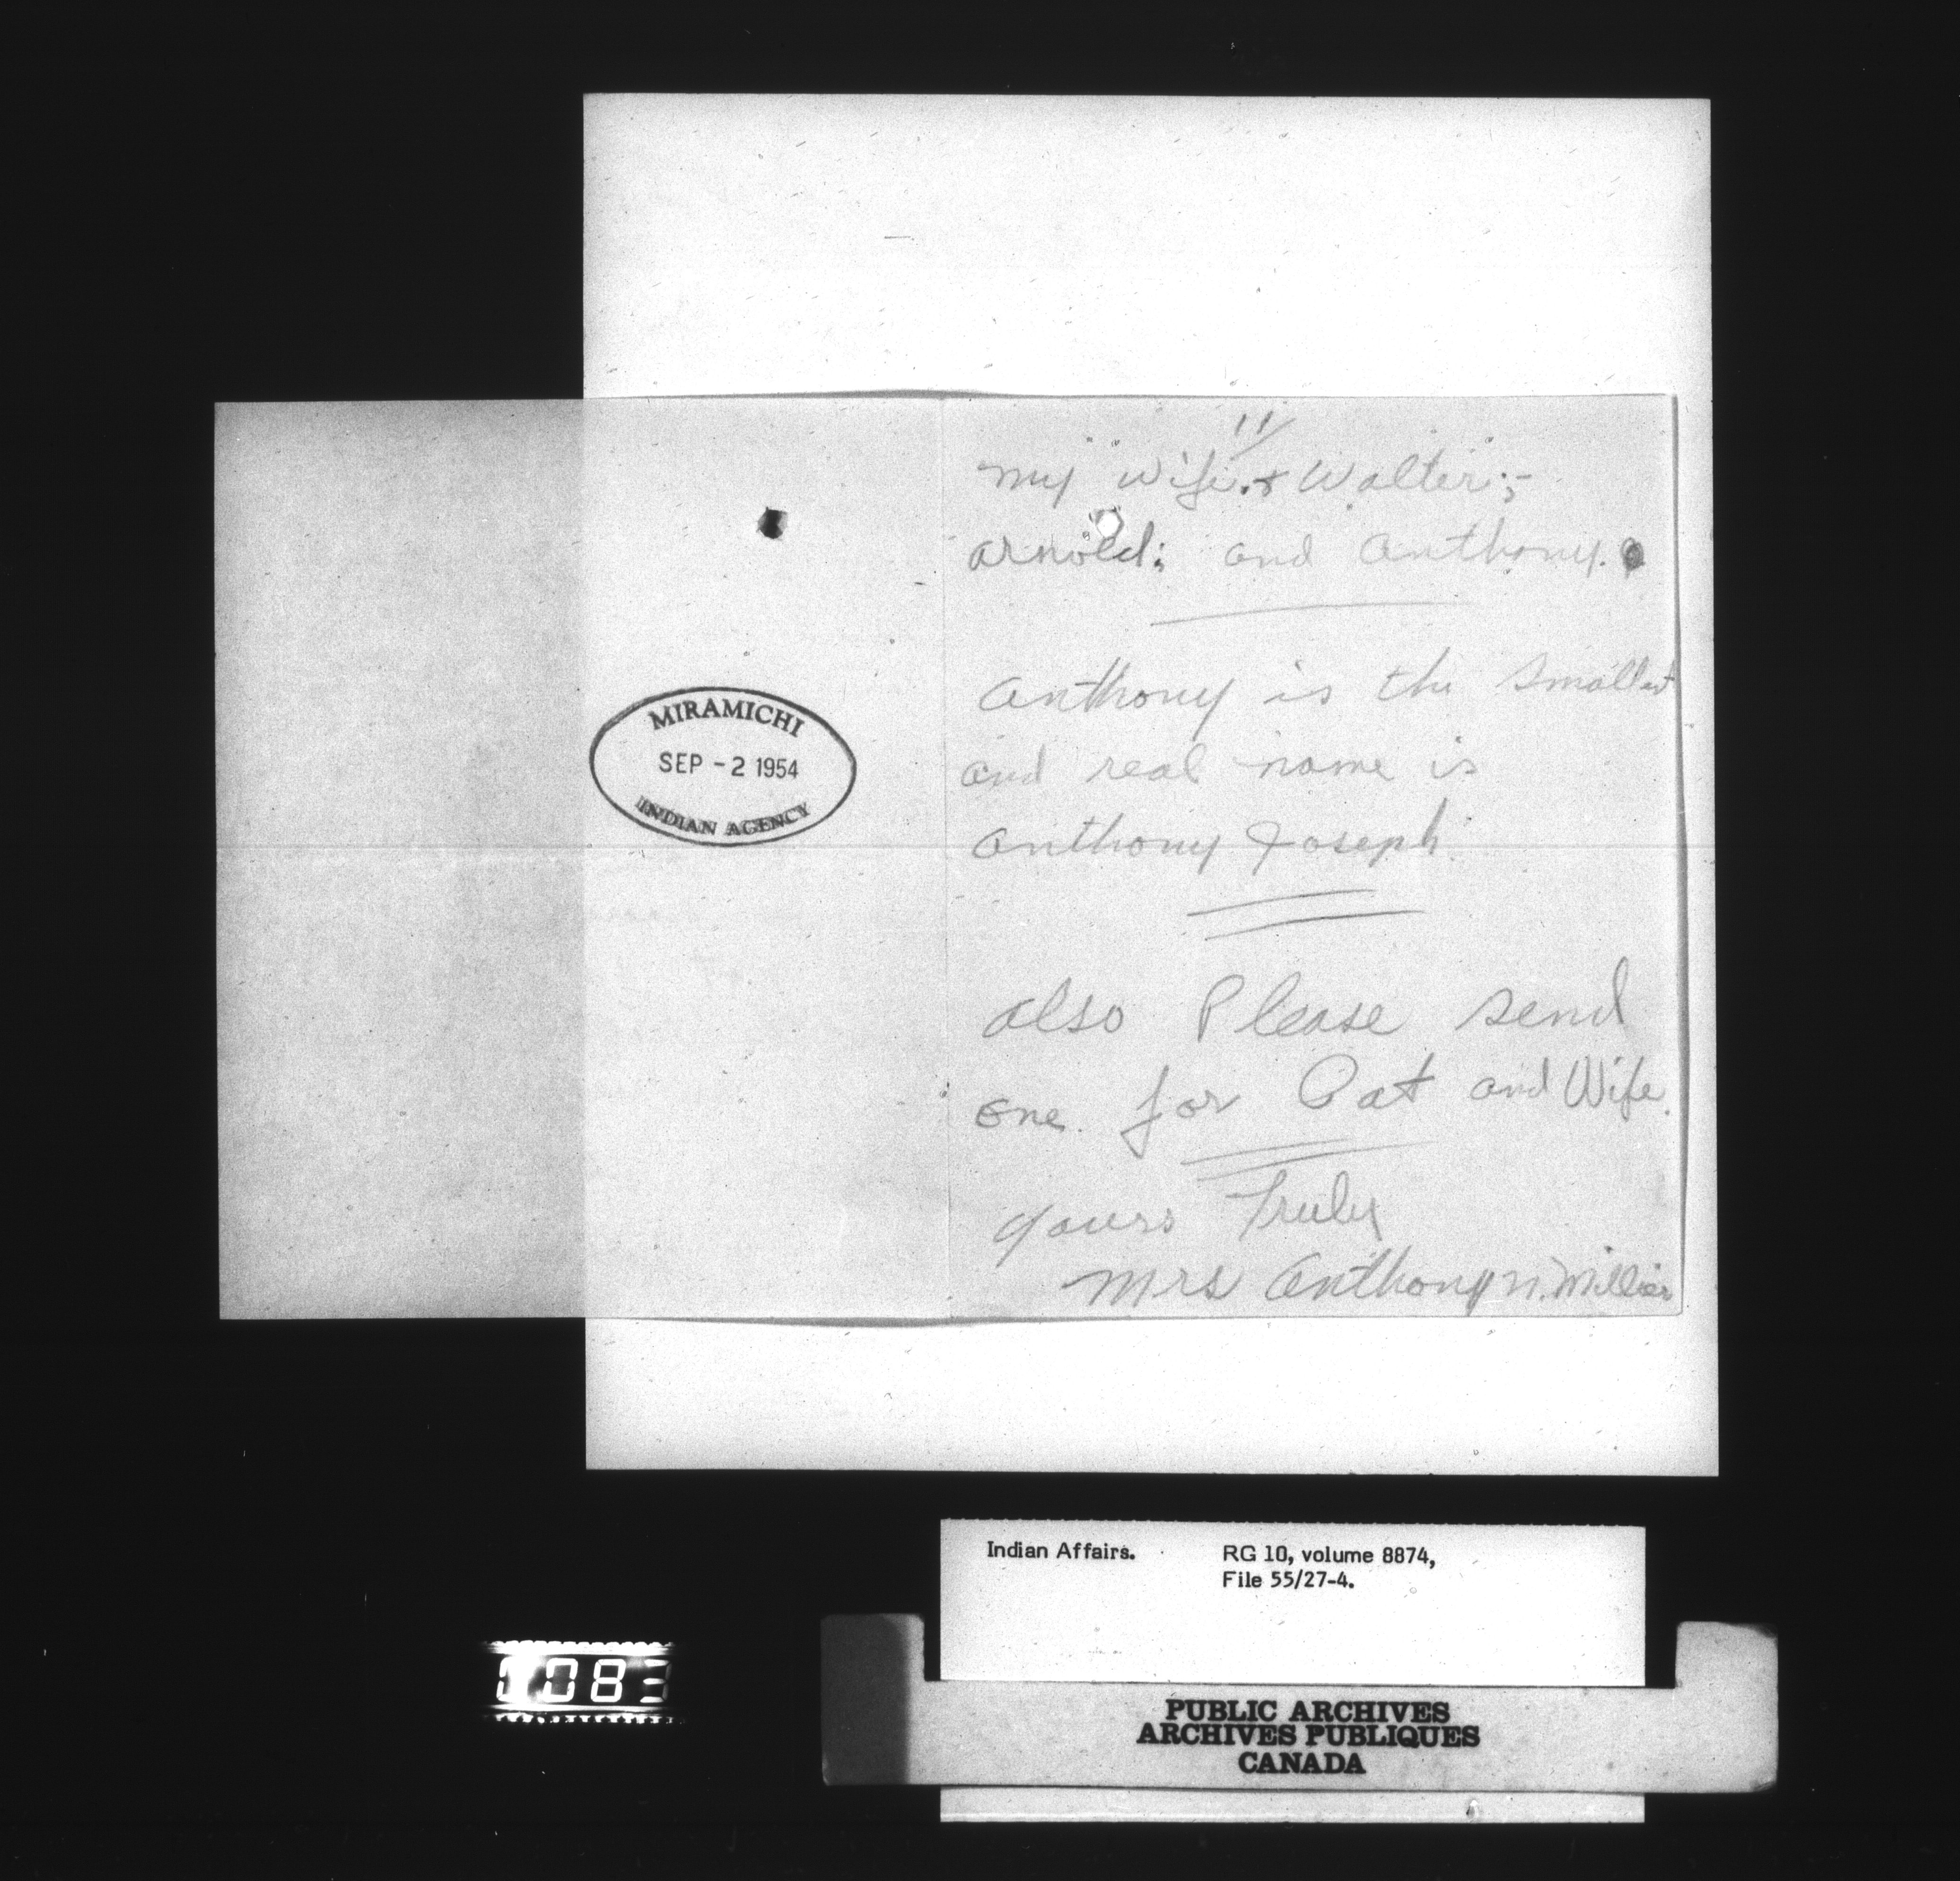 11
my wife. & Walter;-
arnold; and anthony.
anthony is the smallest
and real name is
anthony Joseph
also Please send
one. for Pat and Wife.
yours Truly
Mrs Anthony N.
MIRAMICHI
SEP - 2 1954
INDIAN AGENCY
Indian Affairs. RG 10, volume 8874,
File 55/27-4.
083
PUBLIC ARCHIVES
ARCHIVES PUBLIQUES
CANADA